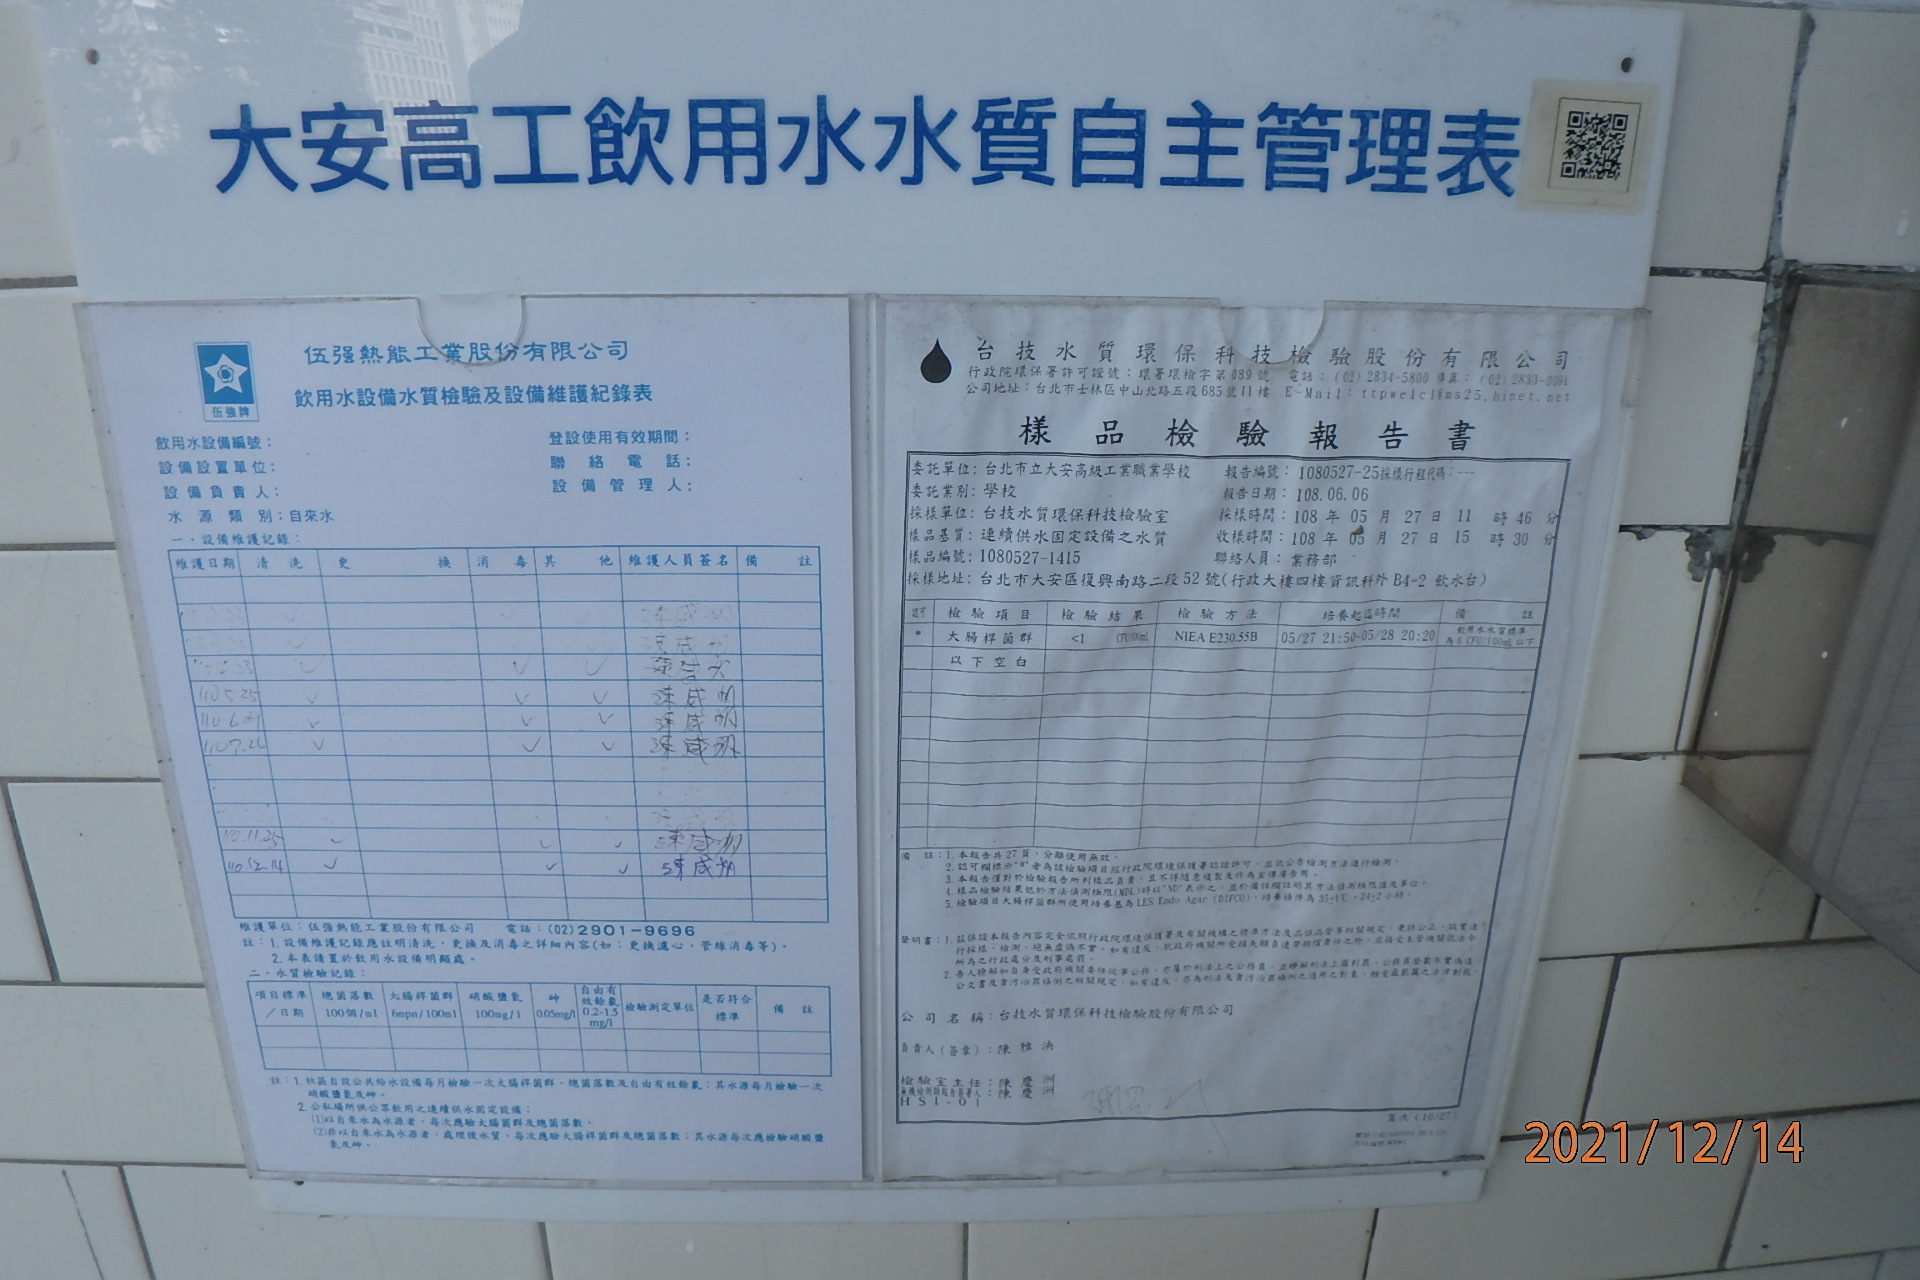 大安高工飲用水水質自主管理表
伍强熱能工業股份有限公司
伍強牌
飲用水設備水質檢驗及設備維護紀錄表
飲用水設備編號：
登設使用有效期間：
設備設置單位：
聯絡電話：
設備負責人：
設備管理人：
水源類別：自來水
一、設備維護記錄：
維護日期 清洗 更換 消毒 其他 維護人員簽名 備註
110.5.25
110.11.25
110.12.14
維護單位：伍強熱能工業股份有限公司 電話：(02)2901-9696
註：1.設備維護記錄應註明清洗、更換及消毒之詳細內容(如：更換濾心、管線消毒等)。
2.本表請置於飲用水設備明顯處。
二、水質檢驗記錄：
項目標準／日期 總菌落數 100個/ml 大腸桿菌群 6mpn/100ml 硝酸鹽氮 100mg/l 砷 0.05mg/l 自由有效餘氯 0.2-1.5 mg/l 檢驗測定單位 是否符合標準 備註
註：1.社區自設公共給水設備每月檢驗一次大腸桿菌群、總菌落數及自由有效餘氯；其水源每月檢驗一次
硝酸鹽氮及砷。
2.公私場所供公眾飲用之連續供水固定設備：
(1)以自來水為水源者，每次應驗大腸桿菌群及總菌落數。
(2)非以自來水為水源者，處理後水質，每次應驗大腸桿菌群及總菌落數；其水源每次應檢驗硝酸鹽
氮及砷。
台技水質環保科技檢驗股份有限公司
行政院環保署許可證號：環署環檢字第089號 電話：(02)2834-5800 傳真：(02)2833-0091
公司地址：台北市士林區中山北路五段685號11樓 E-Mail：ttpwelcl@ms25.hinet.net
樣品檢驗報告書
委託單位：台北市立大安高級工業職業學校 報告編號：1080527-25採樣行程代碼：---
委託業別：學校 報告日期：108.06.06
採樣單位：台技水質環保科技檢驗室 採樣時間：108年05月27日11時46分
樣品基質：連續供水固定設備之水質 收樣時間：108年05月27日15時30分
樣品編號：1080527-1415 聯絡人員：業務部
採樣地址：台北市大安區復興南路二段52號(行政大樓四樓資訊科外B4-2 飲水台)
認可 檢驗項目 檢驗結果 檢驗方法 培養起迄時間 備註
* 大腸桿菌群 <1 CFU/100mL NIEA E230.55B 05/27 21:50-05/28 20:20 飲用水水質標準為6 CFU/100mL以下
以下空白
備註：1.本報告共27頁，分離使用無效。
2.認可欄標示"*"者為該檢驗項目經行政院環境保護署認證許可，並依公告檢測方法進行檢測。
3.本報告僅對於檢驗報告所列樣品負責，且不得隨意複製及作為宣傳廣告用。
4.樣品檢驗結果低於方法偵測極限(MDL)時以"ND"表示之，並於備註欄註明其方法偵測極限值及單位。
5.檢驗項目大腸桿菌群所使用培養基為LES Endo Agar (DIFCO)，培養條件為35±1℃，24±2小時。
公司名稱：台技水質環保科技檢驗股份有限公司
負責人(簽章)：陳雅泱
檢驗室主任：陳慶洲
無機檢測類報告簽署人：陳慶洲
HSI-01
頁次(10/27)
2021/12/14